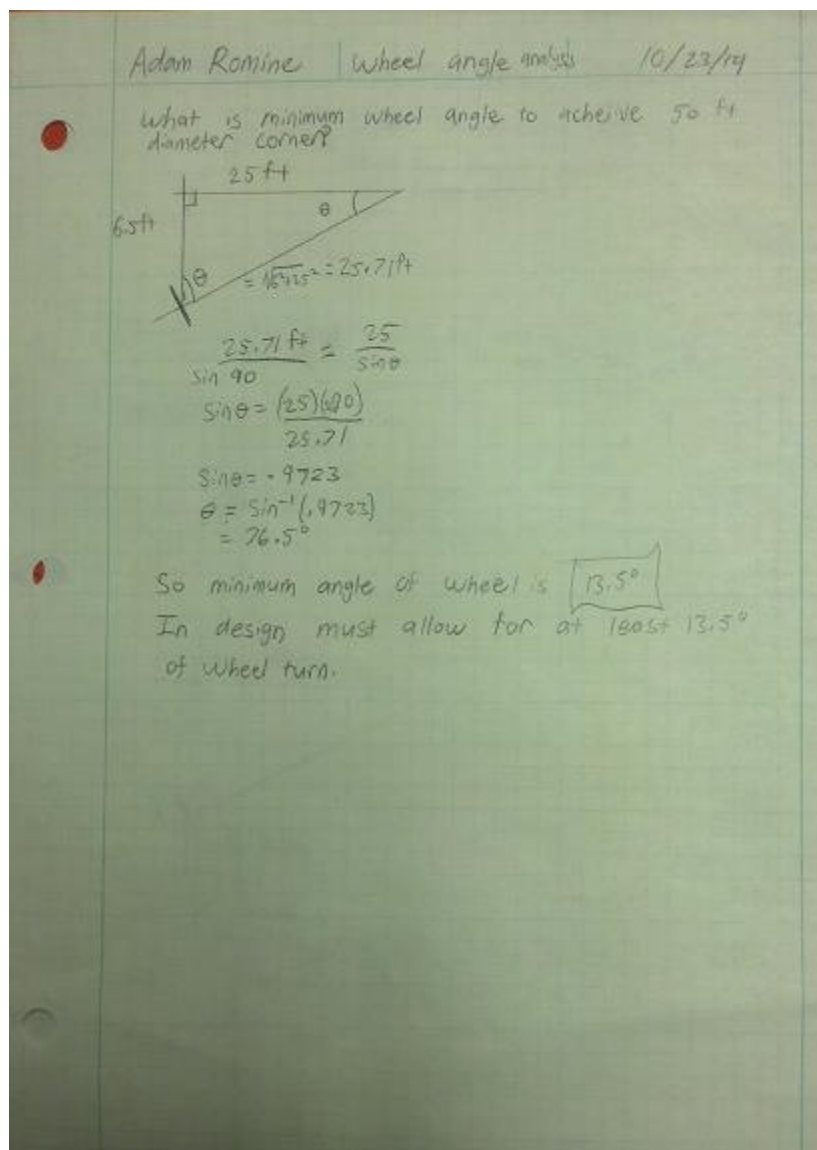 Adam Romine Wheel angle analysis 10/23/14
What is minimum wheel angle to acheive 50 ft
diameter corner?
25 ft
θ
6.5ft
θ
= √6²+25² = 25.71ft
25.71 ft / sin 90 = 25 / sin θ
sin θ = (25)(90) / 25.71
sin θ = .9723
θ = sin⁻¹(.9723)
= 76.5°
So minimum angle of wheel is 13.5°
In design must allow for at least 13.5°
of wheel turn.